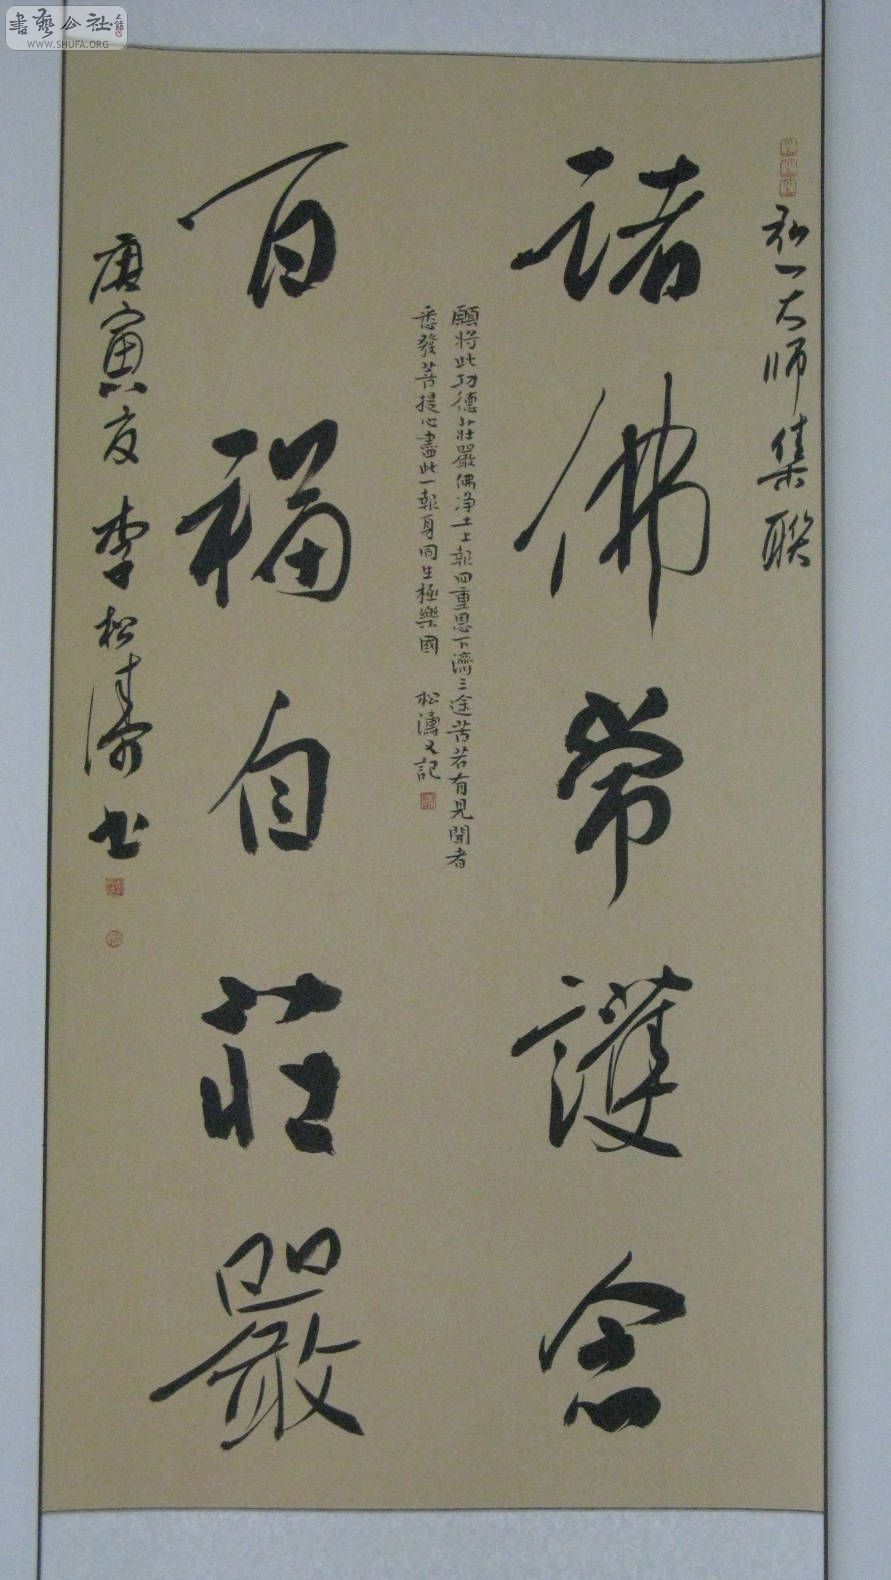 書藝公社
WWW.SHUFA.ORG
弘一大師集聯
諸佛常護念
願將此功德莊嚴佛净土上報四重恩下濟三途苦若有見聞者
悉發菩提心盡此一報身同生極樂國 松濤又記
百福自莊嚴
庚寅夏李松濤書